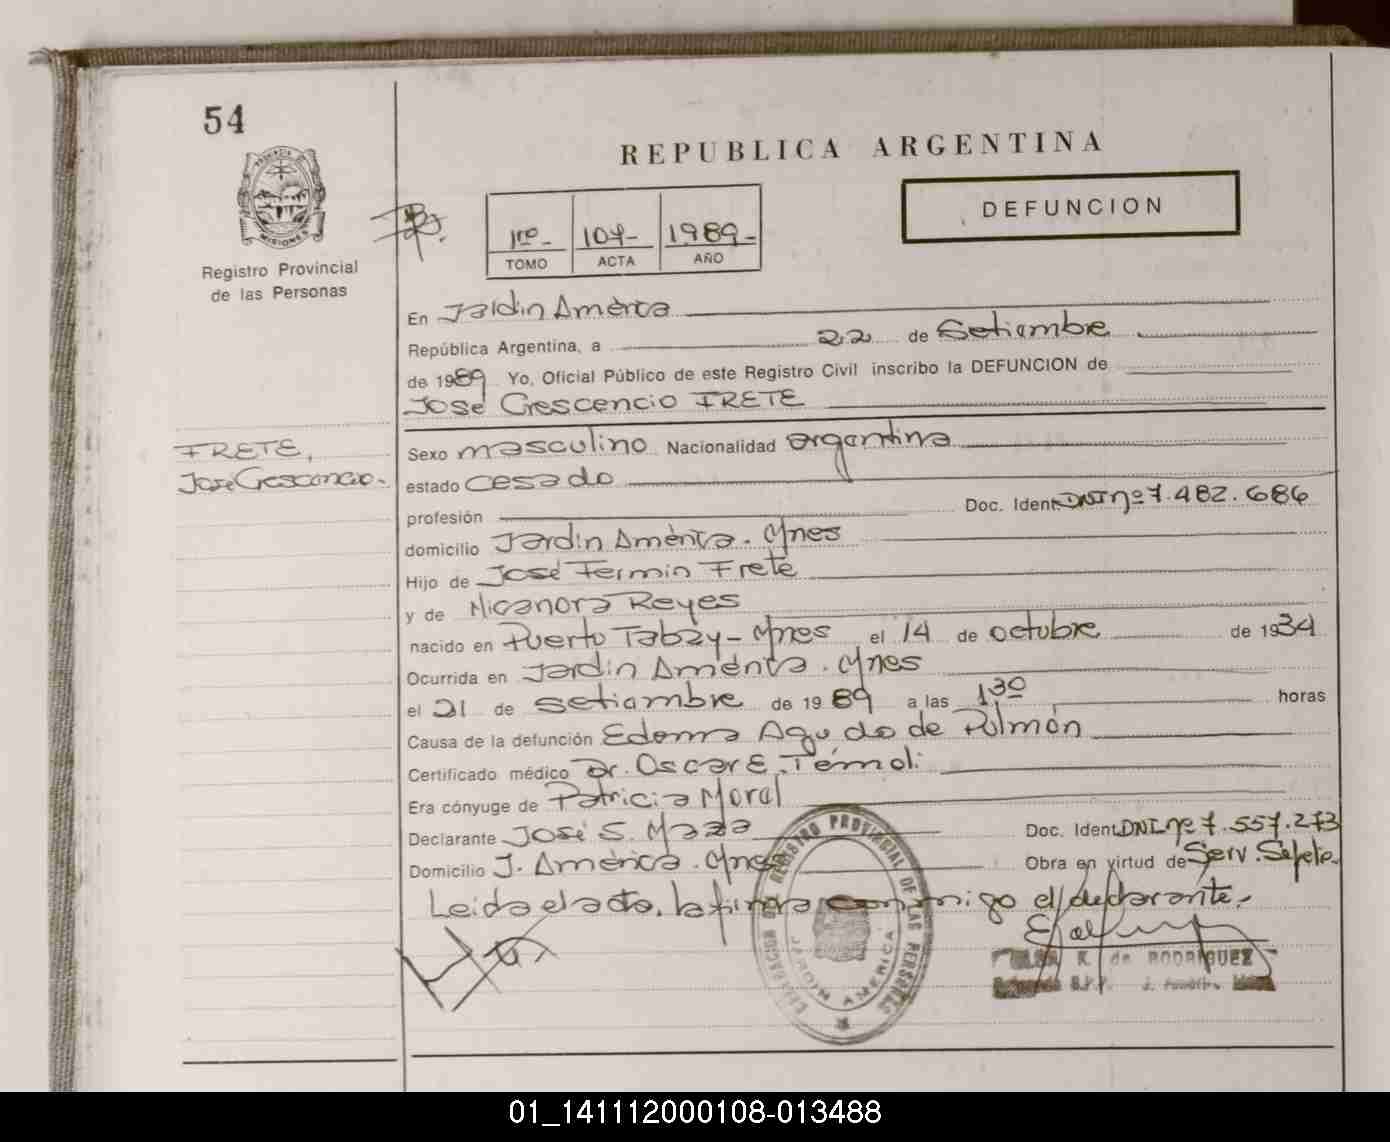 54
REPUBLICA ARGENTINA
DEFUNCION
PROVINCIA DE MISIONES
Registro Provincial
de las Personas
1ro - 104 - 1989 -
TOMO ACTA AÑO
En Jardin América
República Argentina, a 22 de Setiembre
de 1989 Yo, Oficial Público de este Registro Civil inscribo la DEFUNCION de
José Crescencio FRETE
FRETE,
José Crescencio.-
Sexo masculino Nacionalidad argentina
estado casado
profesión Doc. Ident. DNI nº 7.482.686
domicilio Jardin América. Mnes
Hijo de José Fermin Frete
y de Nicanora Reyes
nacido en Puerto Tabay - Mnes el 14 de octubre de 1934
Ocurrida en Jardin América. Mnes
el 21 de setiembre de 1989 a las 1 30 horas
Causa de la defunción Edema Agudo de Pulmón
Certificado médico Dr. Oscar E.
Era cónyuge de Patricia Moral
Declarante José S. Maza Doc. Ident. DNI nº 7.557.273
Domicilio J. América. Mnes Obra en virtud de Serv. Sepelio.
Leida el acta, la firma conmigo el declarante.-
REGISTRO PROVINCIAL DE LAS PERSONAS
JARDIN AMERICA
R. de RODRIGUEZ
01_141112000108-013488